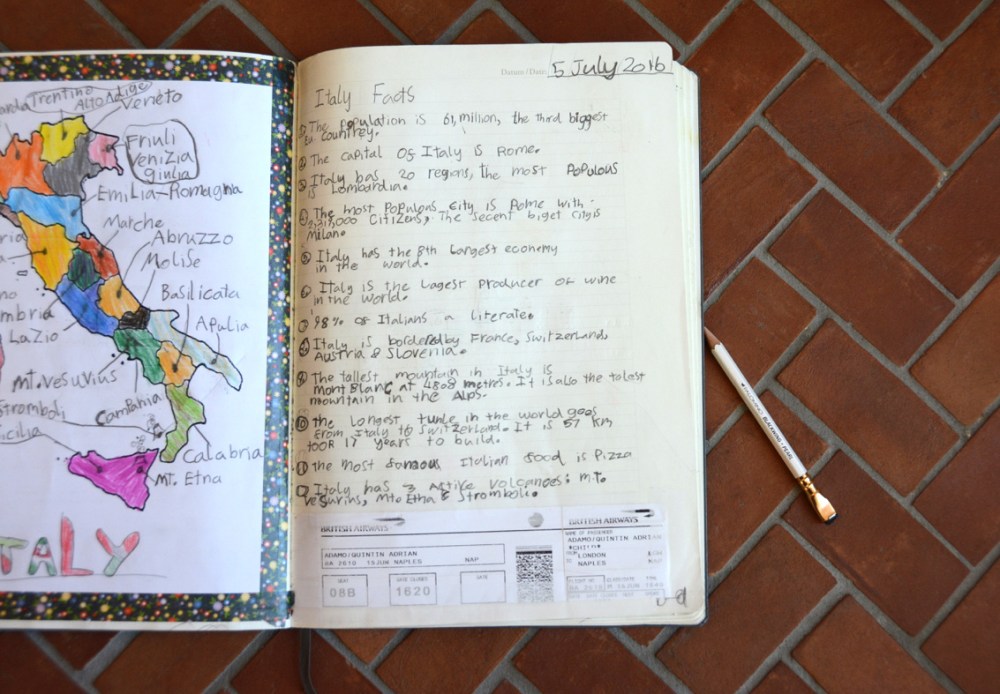 Trentino
ALTO Adige
Veneto
Friuli
Venizia
giulia
Emilia-Romagna
Marche
Abruzzo
Molise
Basilicata
Apulia
LaZio
mt.vesuvius
Campania
Stromboli
Calabria
MT. Etna
ITALY
Datum / Date 5 July 2016
Italy Facts
① The population is 61, million, the third biggest
Eu countrey.
② The capital of Italy is Rome.
③ Italy has 20 regions, the most populous
is Lombardia.
④ The most populous city is Rome with
Citizens, The secent biget city is
milano
⑤ Italy has the 8th largest economy
in the world.
⑥ Italy is the lagest producer of wine
in the world.
⑦ 98% of Italians a literate.
⑧ Italy is bordered by France, Switzerland,
Austria & Slovenia.
⑨ The tallest mountain in Italy is
mont Blanc at 4808 metres. It is also the talest
mountain in the Alps.
⑩ the longest tunle in the world goes
from Italy to Switzerland. It is 57 km
took 17 years to build.
⑪ the most famous Italian food is Pizza
⑫ Italy has 3 active volcanoes: mt.
vesuvius, mt. Etna & Stromboli.
BRITISH AIRWAYS
ADAMO/QUINTIN ADRIAN
BA 2610 15JUN NAPLES NAP
SEAT
GATE CLOSES
GATE
08B
1620
BRITISH AIRWAYS
NAME OF PASSENGER
ADAMO/QUINTIN ADRIAN
LONDON
NAPLES
BLACKWING PEARL